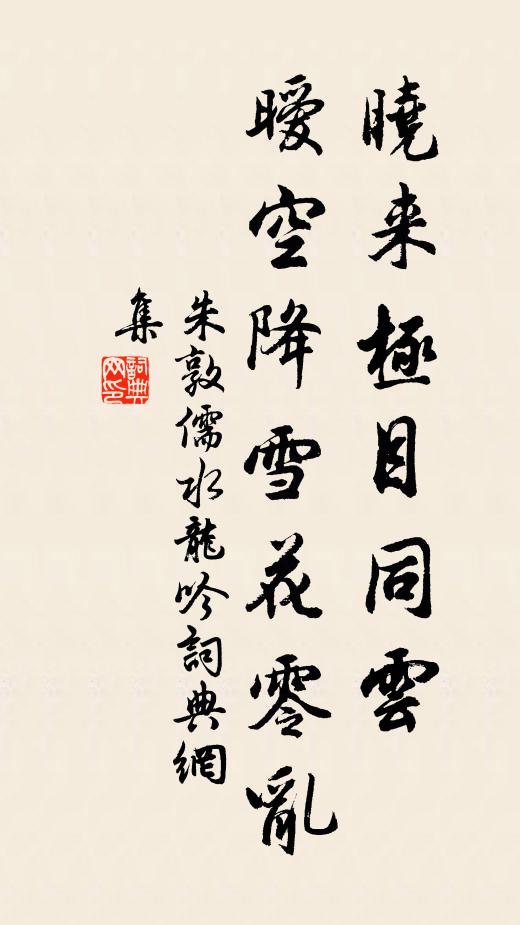 曉来極目同雲
曖空降雪花零亂
朱敦儒水龍吟詞典網
集
詞典网印